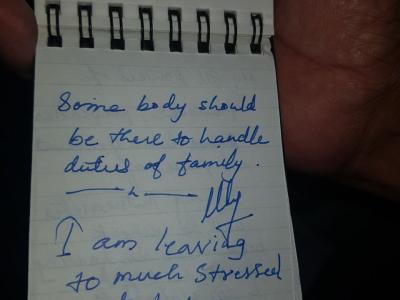 Some body should
be there to handle
duties of family.
I am leaving
to much stressed